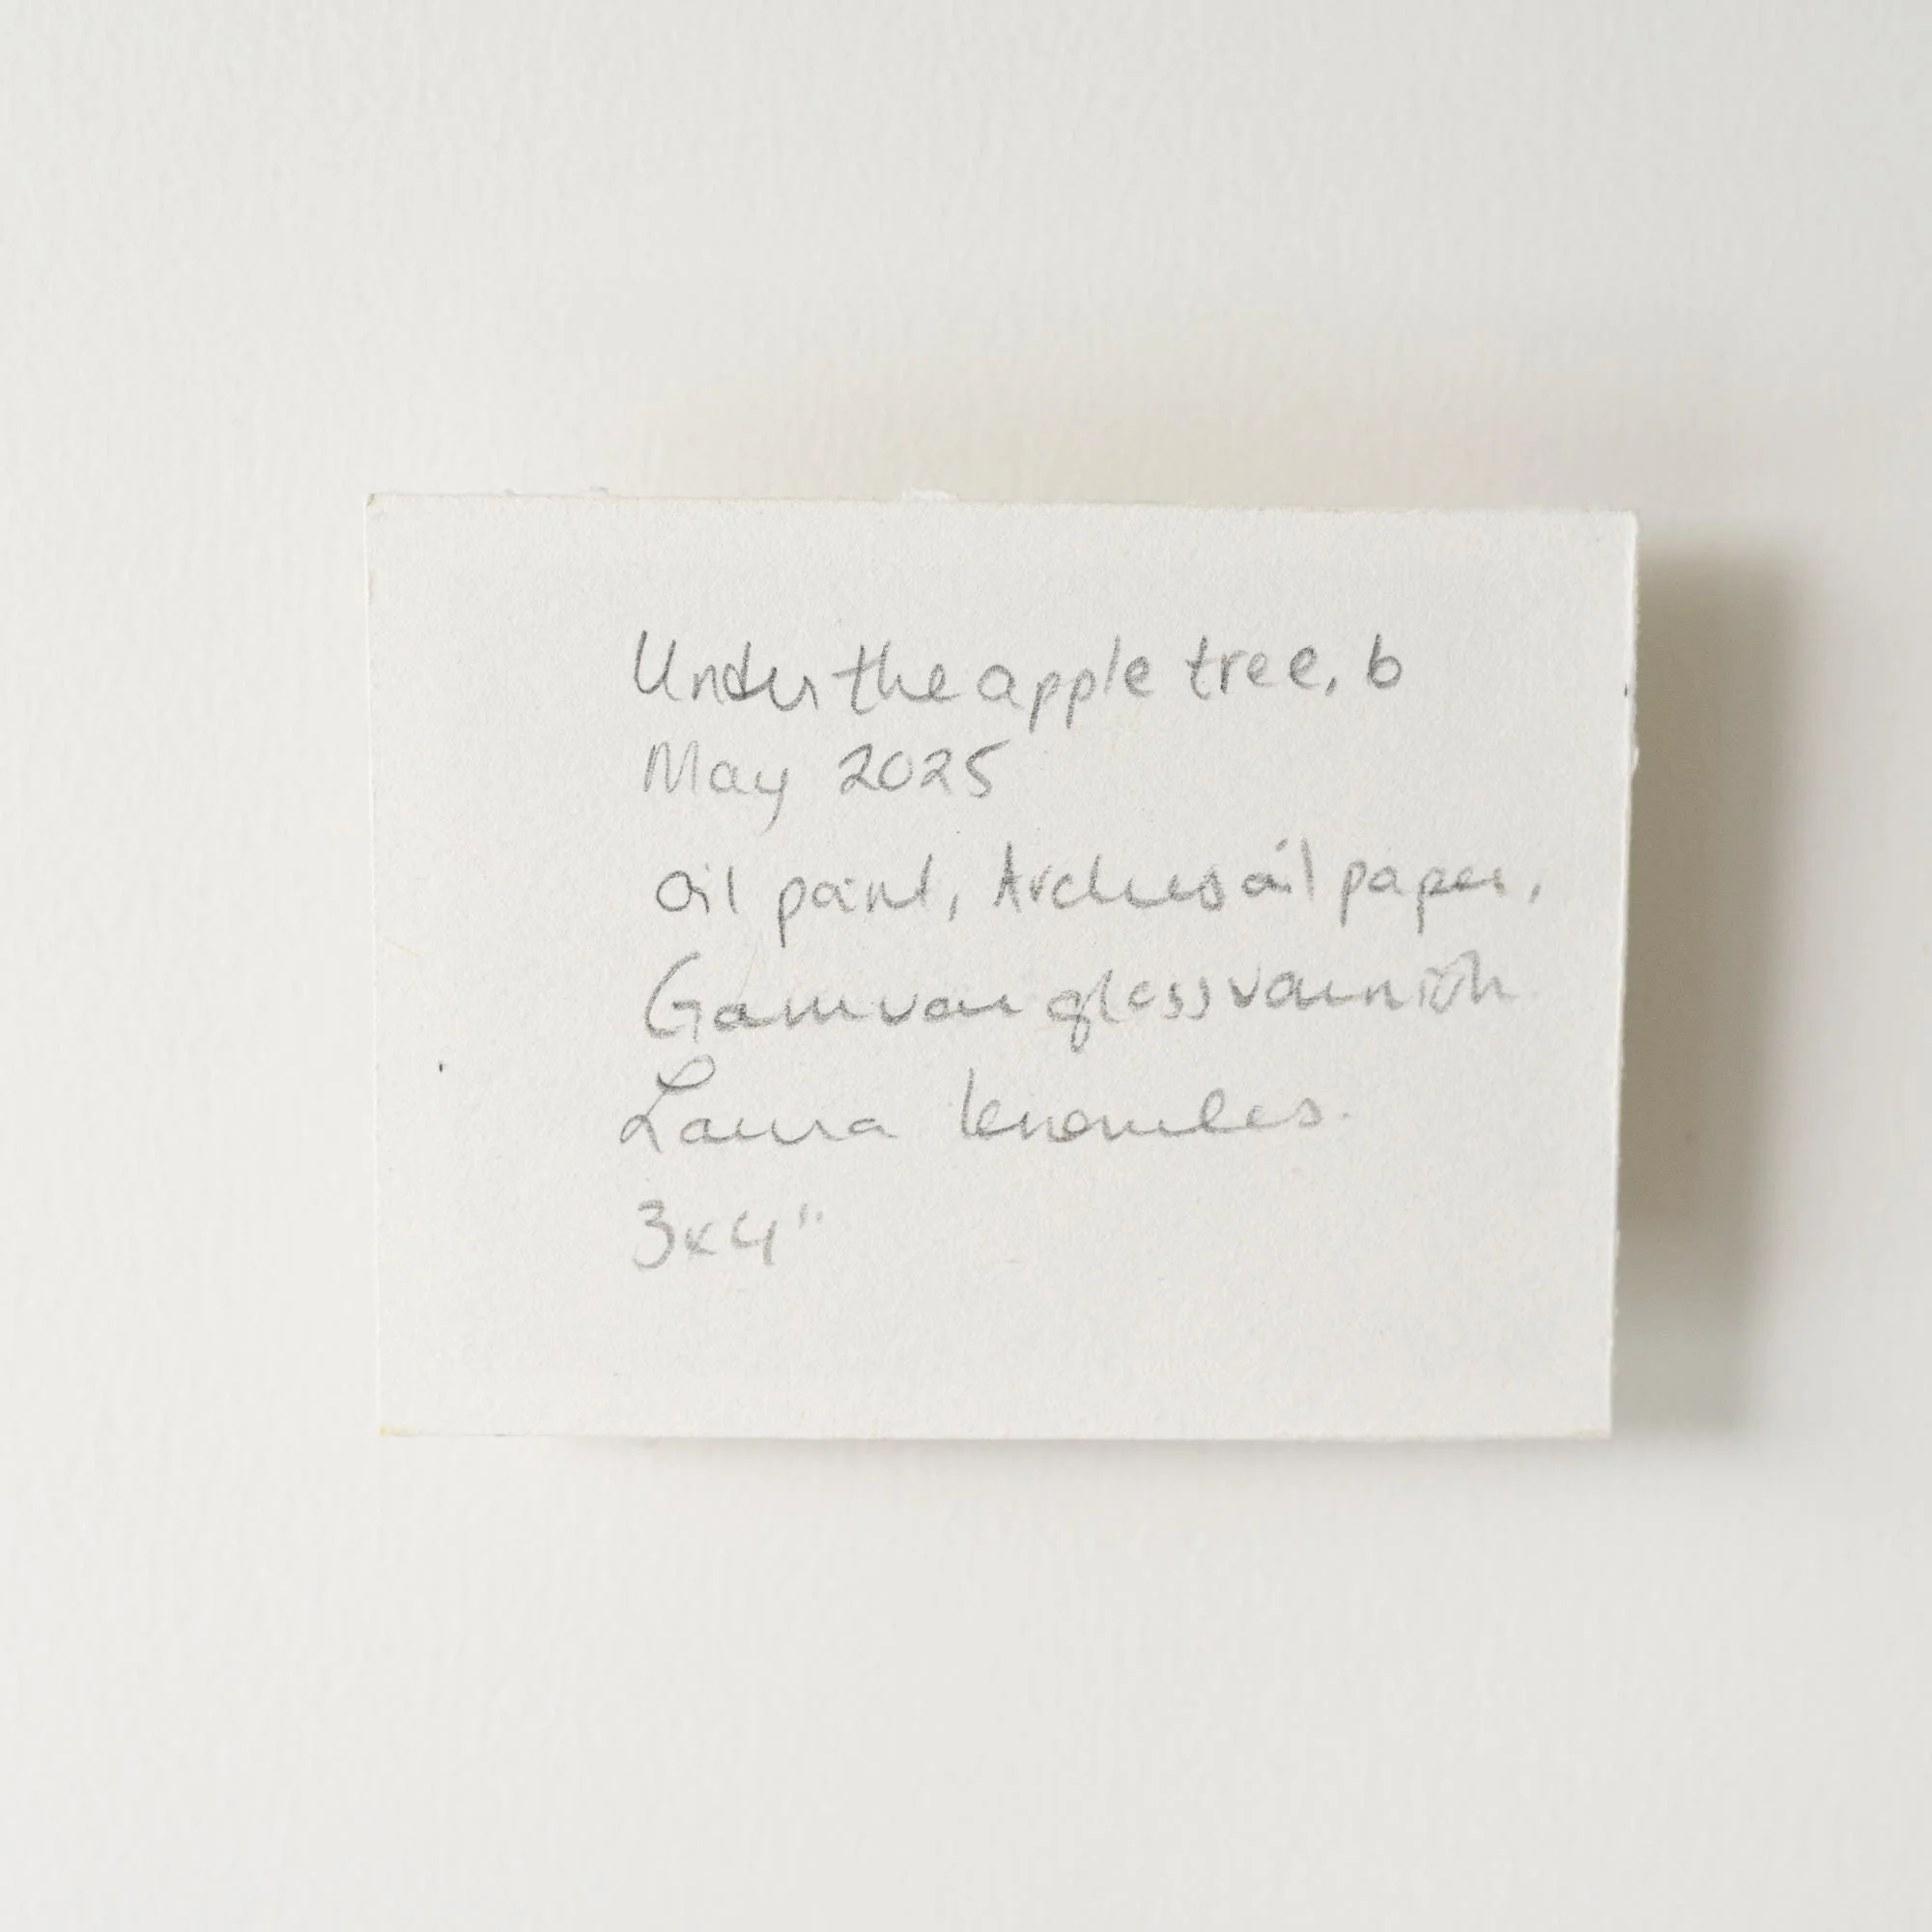 Under the apple tree, b
May 2025
oil paint, Arches oil paper,
Gamvar gloss varnish
Laura Knowles.
3x4"